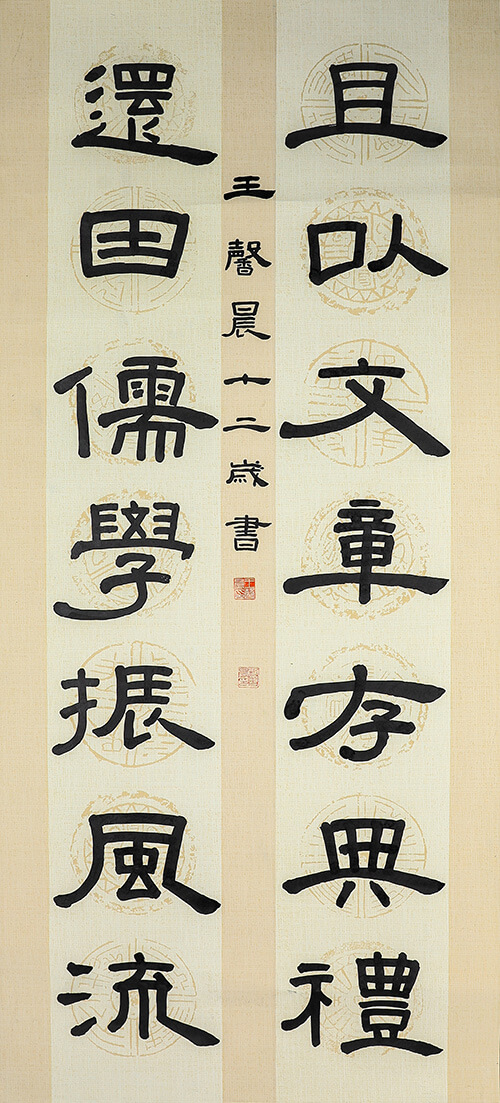 且以文章存典禮
還由儒學振風流
王馨晨十二歲書